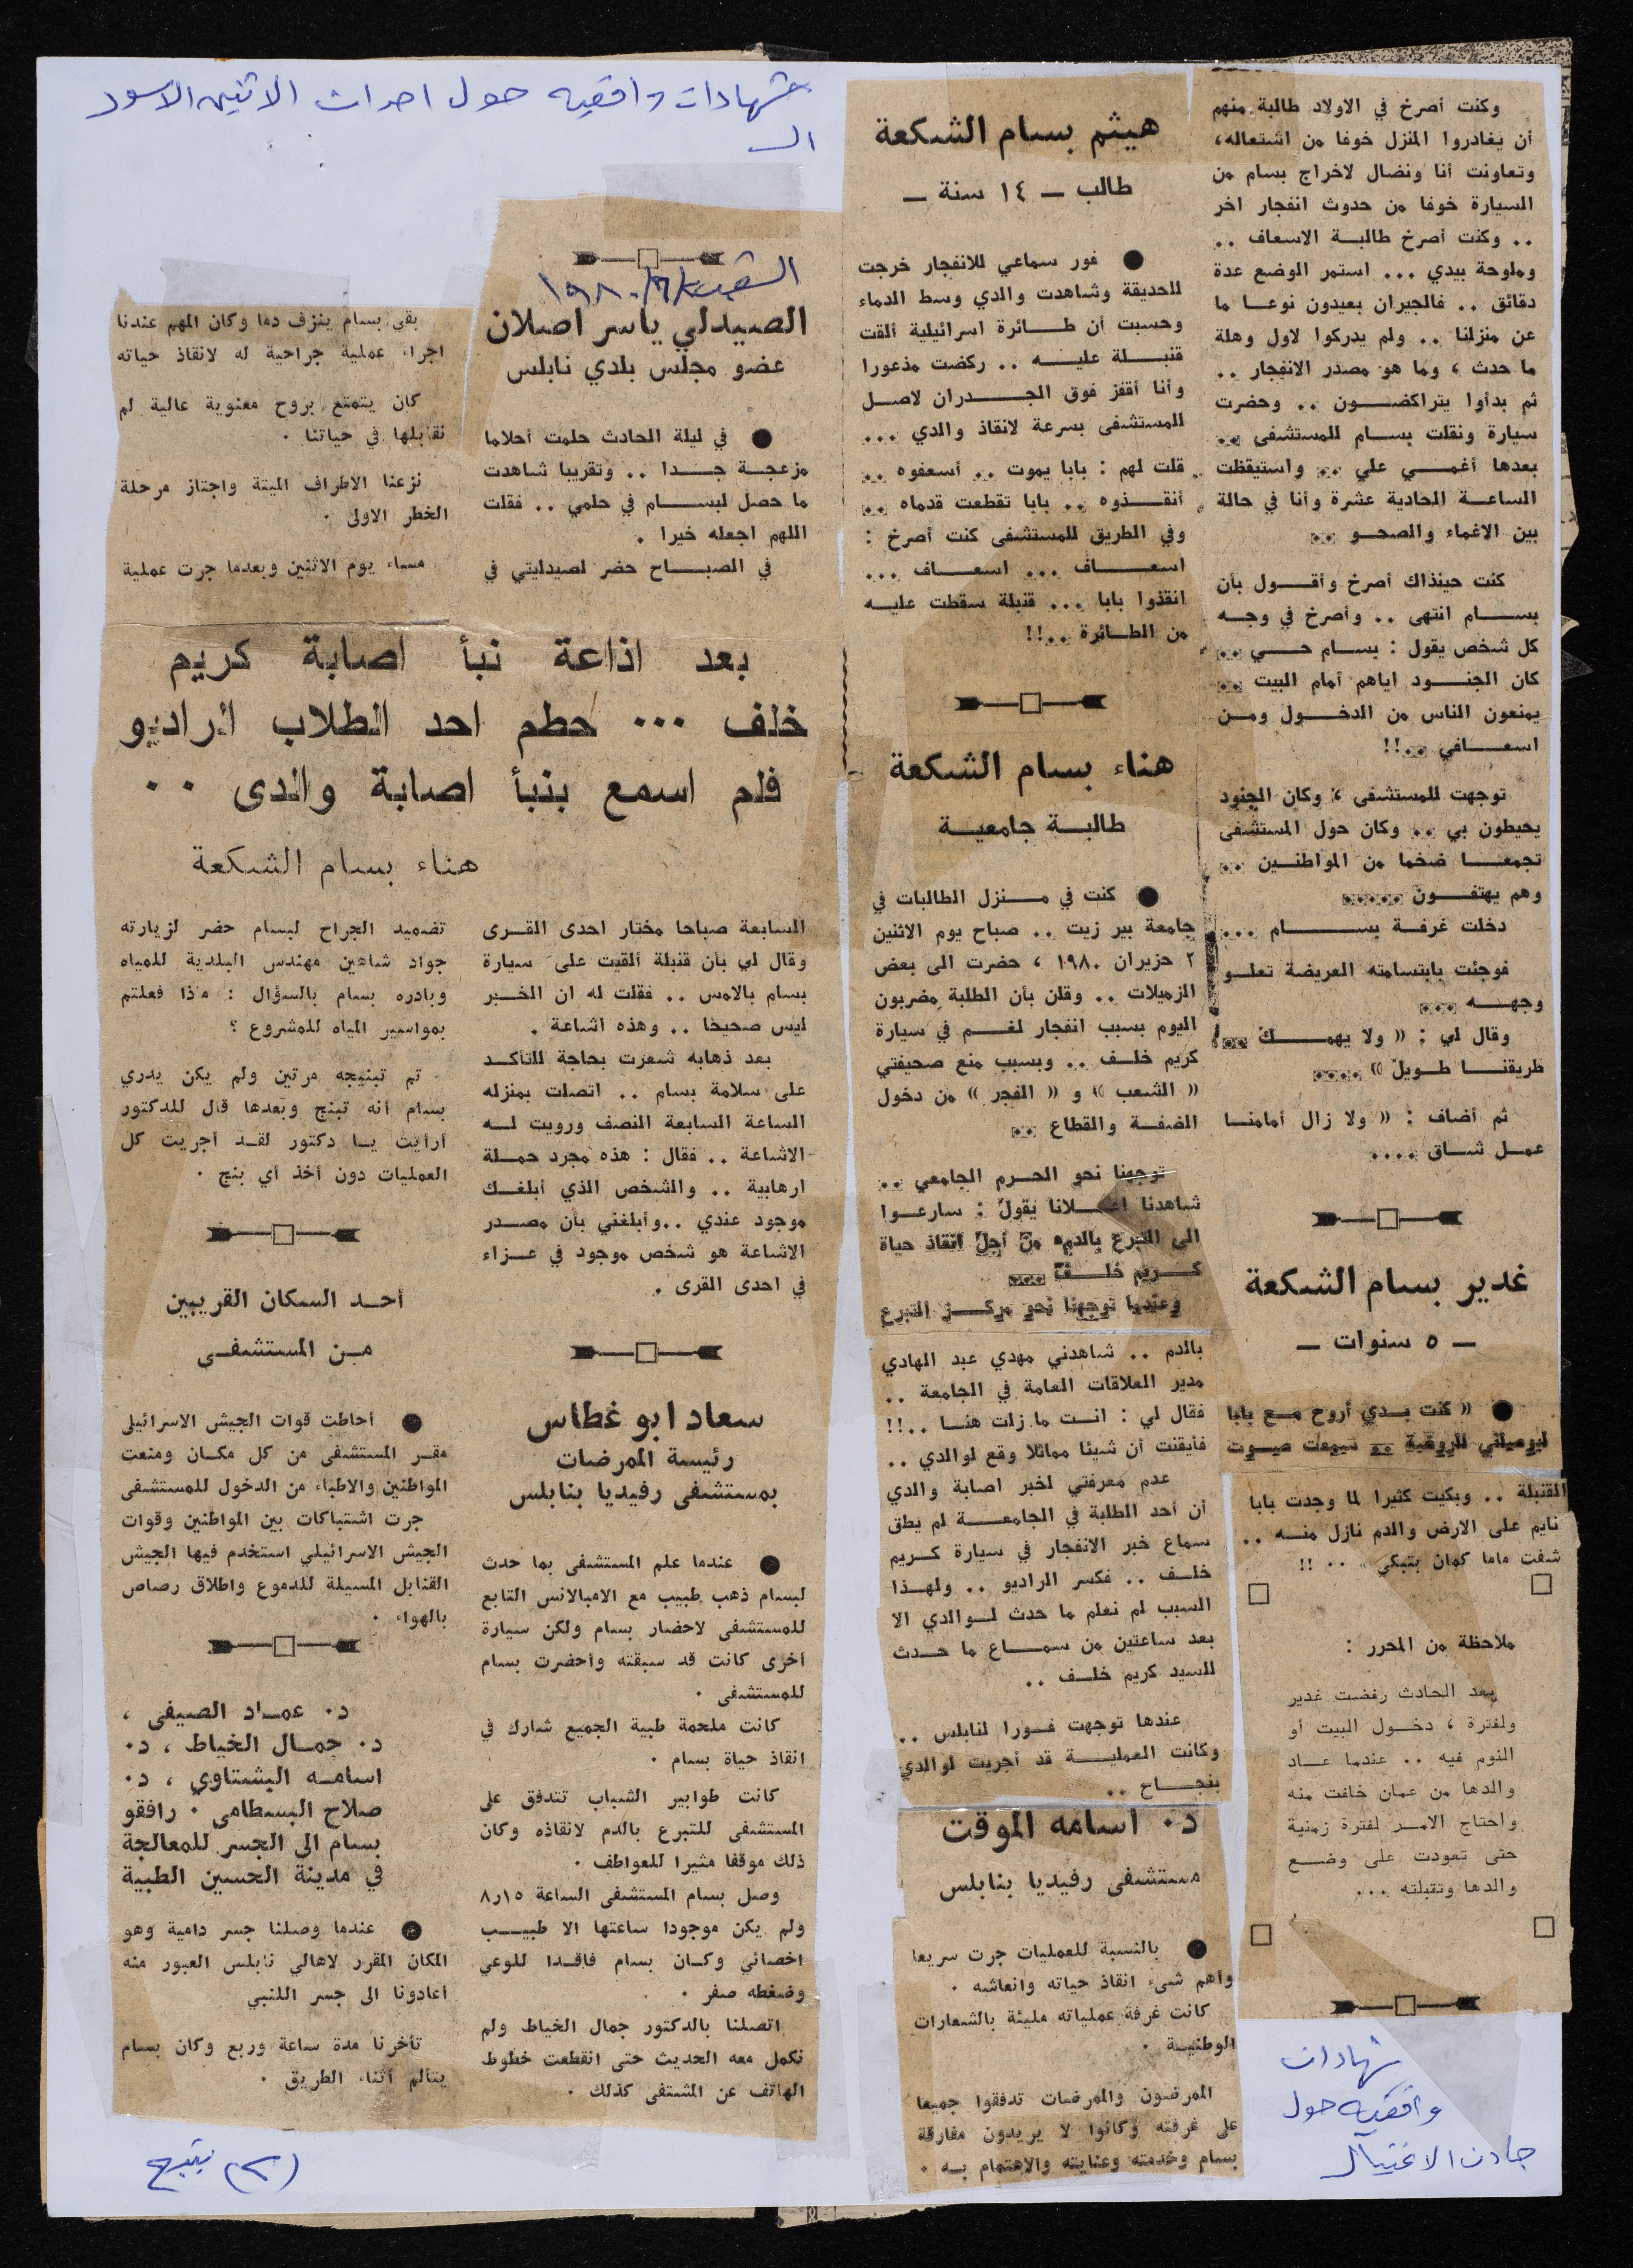 شهادات واقعيه حول احداث الاثنين الاسود
وكنت أصرخ في الاولاد طالبة منهم
أن يغادروا المنزل خوفا من اشتعاله،
وتعاونت أنا ونضال لاخراج بسام من
السيارة خوفا من حدوث انفجار اخر
.. وكنت أصرخ طالبة الاسعاف ..
وملوحة بيدي ... استمر الوضع عدة
دقائق .. فالجيران بعيدون نوعا ما
عن منزلنا .. ولم يدركوا لاول وهلة
ما حدث ، وما هو مصدر الانفجار ..
ثم بدأوا يتراكضون .. وحضرت
سيارة ونقلت بسام للمستشفى ..
بعدها أغمي علي .. واستيقظت
الساعة الحادية عشرة وأنا في حالة
بين الاغماء والصحو ..
كنت حينذاك أصرخ وأقول بأن
بسام انتهى .. وأصرخ في وجه
كل شخص يقول : بسام حي ..
كان الجنود اياهم أمام البيت ..
يمنعون الناس من الدخول ومن
اسعافي ..!!
توجهت للمستشفى ، وكان الجنود
يحيطون بي .. وكان حول المستشفى
تجمعا ضخما من المواطنين ..
وهم يهتفون .....
دخلت غرفة بسام ...
فوجئت بابتسامته العريضة تعلو
وجهه ...
وقال لي : « ولا يهمك ..!
طريقنا طويل » ....
ثم أضاف : « ولا زال أمامنا
عمل شاق ....
غدير بسام الشكعة
— ٥ سنوات —
● « كنت بدي أروح مع بابا
لبوصلني للروضة .. سمعت صوت
القنبلة .. وبكيت كثيرا لما وجدت بابا
نايم على الارض والدم نازل منه ..
شفت ماما كمان بتبكي .. .. !!
ملاحظة من المحرر :
بعد الحادث رفضت غدير
ولفترة ، دخول البيت أو
النوم فيه .. عندما عاد
والدها من عمان خافت منه
واحتاج الامر لفترة زمنية
حتى تعودت على وضع
والدها وتقبلته ...
شهادات
واقعيه حول
حادث الاغتيال
هيثم بسام الشكعة
طالب — ١٤ سنة —
● فور سماعي للانفجار خرجت
للحديقة وشاهدت والدي وسط الدماء
وحسبت أن طائرة اسرائيلية ألقت
قنبلة عليه .. ركضت مذعورا
وأنا أقفز فوق الجدران لاصل
للمستشفى بسرعة لانقاذ والدي ...
قلت لهم : بابا يموت .. أسعفوه ..
أنقذوه .. بابا تقطعت قدماه ..
وفي الطريق للمستشفى كنت أصرخ :
اسعاف ... اسعاف ...
انقذوا بابا ... قنبلة سقطت عليه
من الطائرة ..!!
هناء بسام الشكعة
طالبة جامعية
● كنت في منزل الطالبات في
جامعة بير زيت .. صباح يوم الاثنين
٢ حزيران ١٩٨٠ ، حضرت الى بعض
الزميلات .. وقلن بأن الطلبة مضربون
اليوم بسبب انفجار لغم في سيارة
كريم خلف .. وبسبب منع صحيفتي
« الشعب » و « الفجر » من دخول
الضفة والقطاع ..
توجهنا نحو الحرم الجامعي ..
شاهدنا اعلانا يقول : سارعوا
الى التبرع بالدم من أجل انقاذ حياة
كريم خلف ...
وعندما توجهنا نحو مركز التبرع
بالدم .. شاهدني مهدي عبد الهادي
مدير العلاقات العامة في الجامعة ..
فقال لي : انت ما زلت هنا ..!!
فأيقنت أن شيئا مماثلا وقع لوالدي ..
عدم معرفتي لخبر اصابة والدي
أن أحد الطلبة في الجامعة لم يطق
سماع خبر الانفجار في سيارة كريم
خلف .. فكسر الراديو .. ولهذا
السبب لم نعلم ما حدث لوالدي الا
بعد ساعتين من سماع ما حدث
للسيد كريم خلف ..
عندها توجهت فورا لنابلس ..
وكانت العملية قد أجريت لوالدي
بنجاح ..
د. أسامه الموقت
مستشفى رفيديا بنابلس
● بالنسبة للعمليات جرت سريعا
وأهم شىء انقاذ حياته وانعاشه .
كانت غرفة عملياته مليئة بالشعارات
الوطنية .
الممرضون والممرضات تدفقوا جميعا
على غرفته وكانوا لا يريدون مفارقة
بسام وخدمته وعنايته والاهتمام به .
الصيدلي ياسر اصلان
عضو مجلس بلدي نابلس
● في ليلة الحادث حلمت أحلاما
مزعجة جدا .. وتقريبا شاهدت
ما حصل لبسام في حلمي .. فقلت
اللهم اجعله خيرا .
في الصباح حضر لصيدليتي في
بعد اذاعة نبأ اصابة كريم
خلف ... حطم احد الطلاب الراديو
فلم اسمع بنبأ اصابة والدى ..
هناء بسام الشكعة
السابعة صباحا مختار احدى القرى
وقال لي بأن قنبلة ألقيت على سيارة
بسام بالامس .. فقلت له ان الخبر
ليس صحيحا .. وهذه اشاعة .
بعد ذهابه شعرت بحاجة للتأكد
على سلامة بسام .. اتصلت بمنزله
الساعة السابعة النصف ورويت له
الاشاعة .. فقال : هذه مجرد حملة
ارهابية .. والشخص الذي أبلغك
موجود عندي ..وأبلغني بأن مصدر
الاشاعة هو شخص موجود في عزاء
في احدى القرى .
سعاد ابو غطاس
رئيسة الممرضات
بمستشفى رفيديا بنابلس
● عندما علم المستشفى بما حدث
لبسام ذهب طبيب مع الامبالانس التابع
للمستشفى لاحضار بسام ولكن سيارة
أخرى كانت قد سبقته وأحضرت بسام
للمستشفى .
كانت ملحمة طبية الجميع شارك في
انقاذ حياة بسام .
كانت طوابير الشباب تتدفق على
المستشفى للتبرع بالدم لانقاذه وكان
ذلك موقفا مثيرا للعواطف .
وصل بسام المستشفى الساعة ١٥ر٨
ولم يكن موجودا ساعتها الا طبيب
اخصائي وكان بسام فاقدا للوعي
وضغطه صفر .
اتصلنا بالدكتور جمال الخياط ولم
نكمل معه الحديث حتى انقطعت خطوط
الهاتف عن المشتفى كذلك .
بقي بسام ينزف دما وكان المهم عندنا
اجراء عملية جراحية له لانقاذ حياته
كان يتمتع بروح معنوية عالية لم
نقابلها في حياتنا .
نزعنا الاطراف الميتة واجتاز مرحلة
الخطر الاولى .
مساء يوم الاثنين وبعدما جرت عملية
تضميد الجراح لبسام حضر لزيارته
جواد شاهين مهندس البلدية للمياه
وبادره بسام بالسؤال : ماذا فعلتم
بمواسير المياه للمشروع ؟
تم تبنيجه مرتين ولم يكن يدري
بسام أنه تبنج وبعدها قال للدكتور
أرأيت يا دكتور لقد أجريت كل
العمليات دون أخذ أي بنج .
أحد السكان القريبين
من المستشفى
● أحاطت قوات الجيش الاسرائيلي
مقر المستشفى من كل مكان ومنعت
المواطنين والاطباء من الدخول للمستشفى
جرت اشتباكات بين المواطنين وقوات
الجيش الاسرائيلي استخدم فيها الجيش
القنابل المسيلة للدموع واطلاق رصاص
بالهواء .
د. عماد الصيفي ،
د. جمال الخياط ، د.
اسامه البشتاوي ، د.
صلاح البسطامي . رافقو
بسام الى الجسر للمعالجة
في مدينة الحسين الطبية
● عندما وصلنا جسر دامية وهو
المكان المقرر لاهالي نابلس العبور منه
أعادونا الى جسر اللنبي
تأخرنا مدة ساعة وربع وكان بسام
يتألم أثناء الطريق .
(٢) يتبع